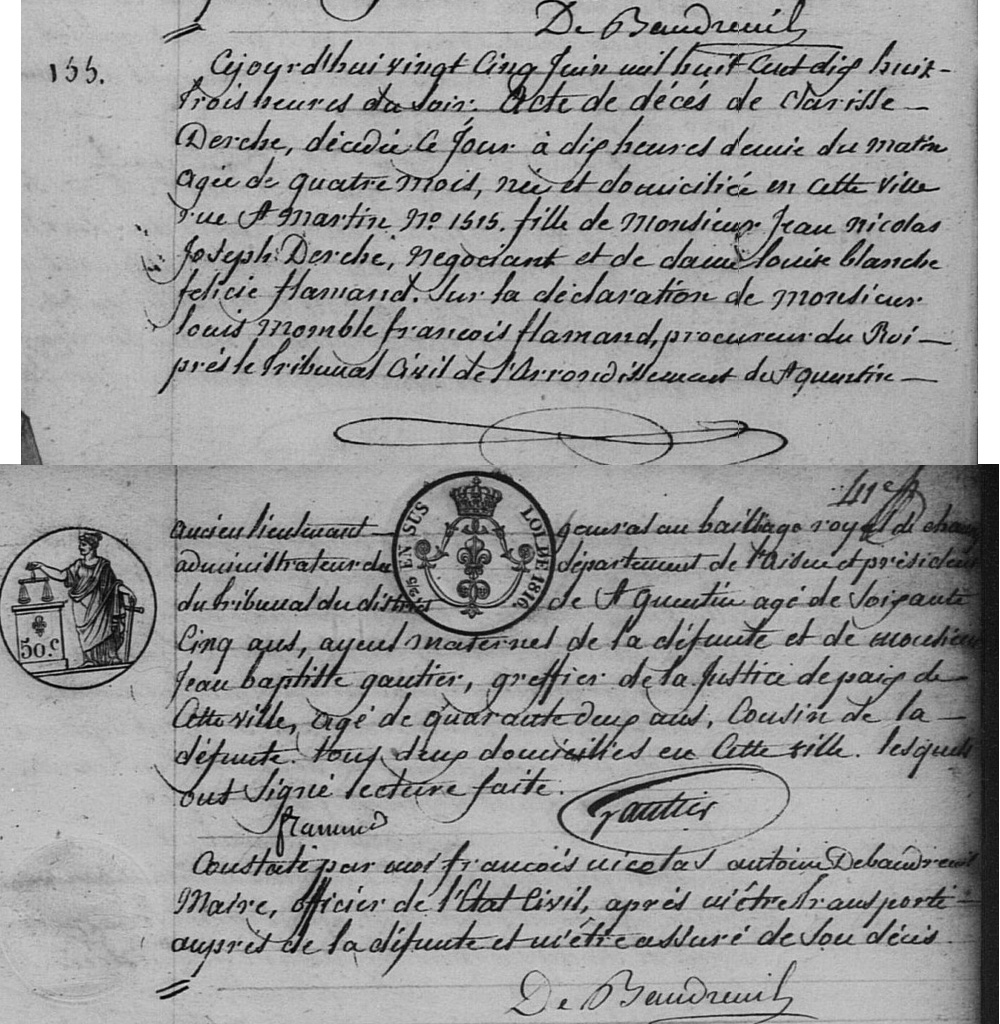 De Baudreuil
155.
Cejourd'hui vingt Cinq Juin mil huit Cent dix huit-
trois heures du soir. Acte de décés de Clarisse
Derche, décédée Ce Jour à dix heures demie du matin
agée de quatre mois, née et domiciliée en cette ville
rue St Martin No 1515. fille de Monsieur Jean Nicolas
Joseph Derche, negociant et de dame louise blanche
felicie flamand. Sur la déclaration de Monsieur
louis Momble francois flamand, procureur du Roi
prés le tribunal Civil de l'Arrondissement de St quentin
41e
ancien lieutenant general au bailliage royal de chauny
administrateur du département de l'Aisne et président
du tribunal du district de St Quentin agé de Soixante
Cinq ans, ayeul maternel de la défunte et de monsieur
Jean baptiste gautier, greffier de la Justice de paix de
Cette ville, agé de quarante deux ans, Cousin de la
défunte. tous deux domiciliés en Cette ville. lesquels
ont Signé lecture faite.
EN SUS
LOI DE 1816.
50.c
flamand
Gautier
Constaté par moi francois nicolas antoine Debaudreuil
Maire, officier de l'Etat Civil, aprés m'être transporté
aupres de la défunte et m'être assuré de Son décés.
De Baudreuil